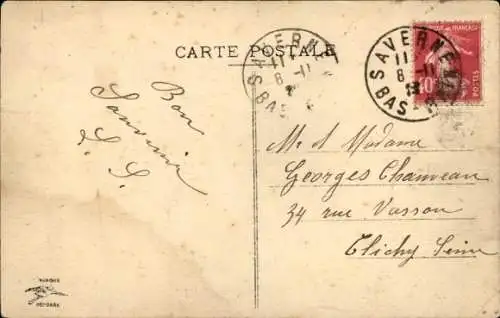 CARTE POSTALE
SAVERNE
11
8 -11
BAS
SAVERNE
11
8 -11
BAS-
FRANÇAISE
POSTES
40
Bon
Souvenir
S. S.
Mr et Madame
Georges Chauveau
34 rue Vasson
Clichy Seine